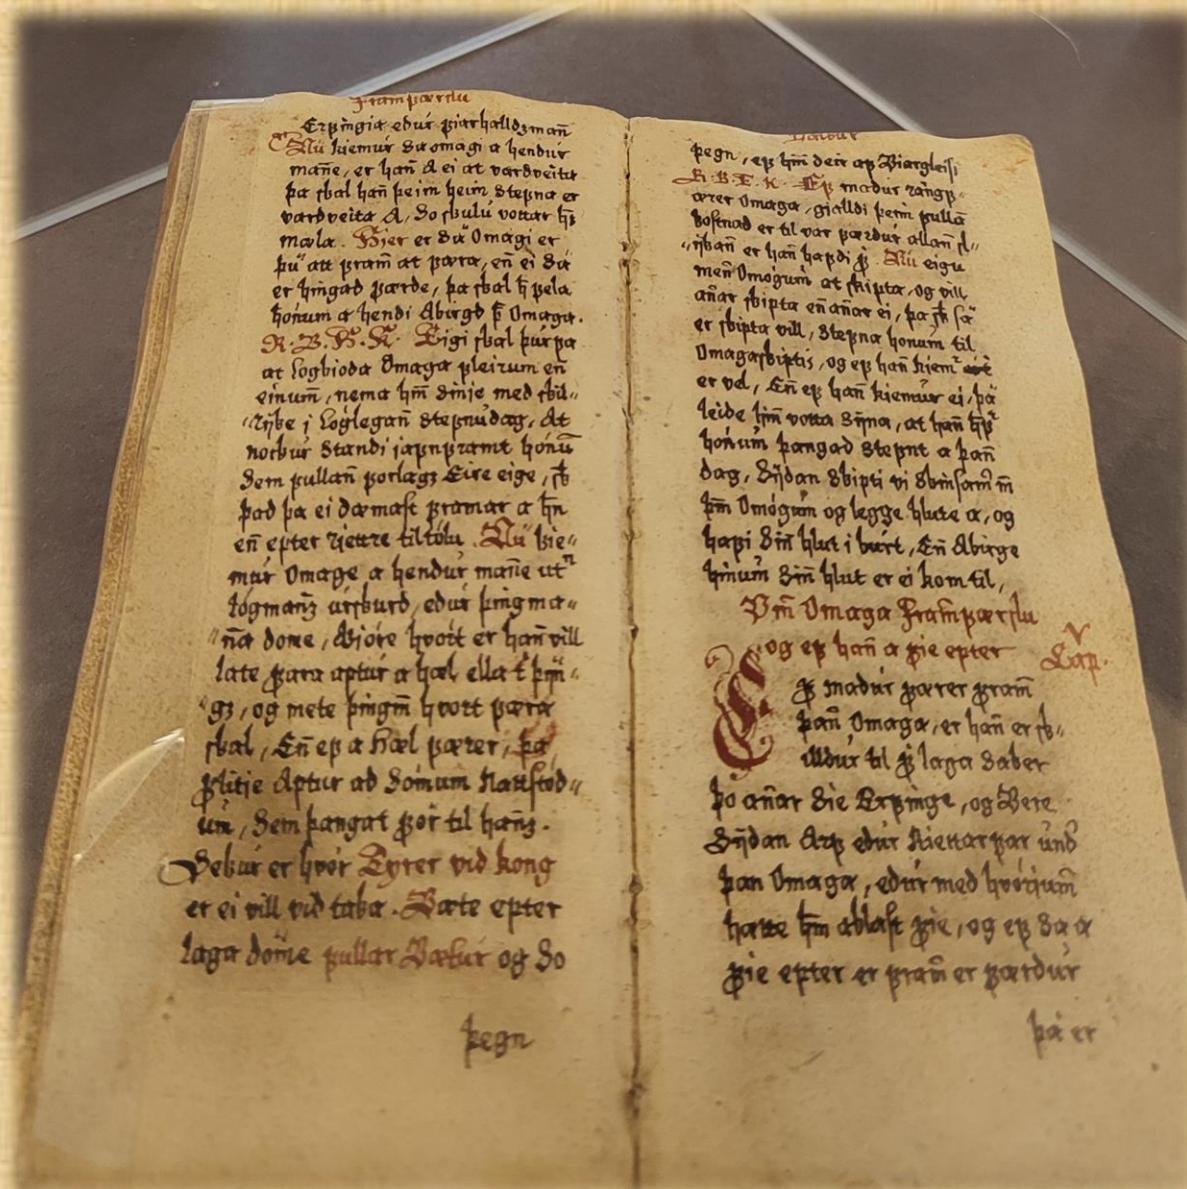 Framfærslu
Erfingia edur fiarhalldzmañ
Nu kiemur sa omagi a hendur
mañe, er hañ A ei at vardveita
þa skal hañ þeim heim stefna er
vardveita A, so skulu vottar hs
mæla. Hier er sa Omagi er
þu att fram at færa, eñ ei sa
er hingad færde, þa skal h fela
honum a hendi Abirgd f Omaga.
R. B. H. K. Eigi skal þurfa
at logbioda Omaga fleirum eñ
einum, nema hm sinie med skil-
-rijke i Löglegañ stefnudag, At
nockur standi jafnframt honu
sem fullañ forlags Eire eige, sk
þad þa ei dæmast framar a hn
eñ epter riettre tiltölu. Nu kie-
mur Omage a hendur mañe ut
lögmañz urskurd, edur þingma-
-ña dome, Kiöre hvort er hañ vill
late fara aptur a hæl ella t þri-
-gz, og mete þingm hvort færa
skal, Eñ ef a Hæl færer, þa
flitie Aptur ad somum Nattstöd-
um, sem þangat för til hañs.
Sekur er hvör Tyrer vid kong
er ei vill vid taka. Bæte epter
laga döme fullar Bætur og so
þegn
Balkur
þegn, ef hm deir af Biargleisi
R. B. T. K. Ef madur rangf-
ærer Omaga, gialldi þeim fulla
kostnad er til var færdur allañ sl-
-ijkañ er hañ hafdi f. Nu eigu
meñ Omögum at skipta, og vill
añar skipta eñ añar ei, þa sk sa
er skipta vill, stefna honum til
Omagaskiptis, og ef hañ kiemr
er vel, Eñ ef hañ kiemur ei, þa
leide hm votta sijna, at hañ hf
honum þangad stefnt a þañ
dag, Sijdan skipti vi skinsamr m
þm Omögum og legge hlute a, og
hafi siñ hlut i burt, Eñ Abirge
hinum siñ hlut er ei kom til,
Vm Omaga Framfærslu
og ef hañ a fie epter
V Cap.
Ef madur færer fram
þañ Omaga, er hañ er sk-
illdur til f laga saker
þo añar sie Erfinge, og Bere
Sijdan Arf edur Riettarfar und
þan Omaga, edur med hvörium
hætte hm ablast fie, og ef sa a
fie epter er fram er færdur
þa er